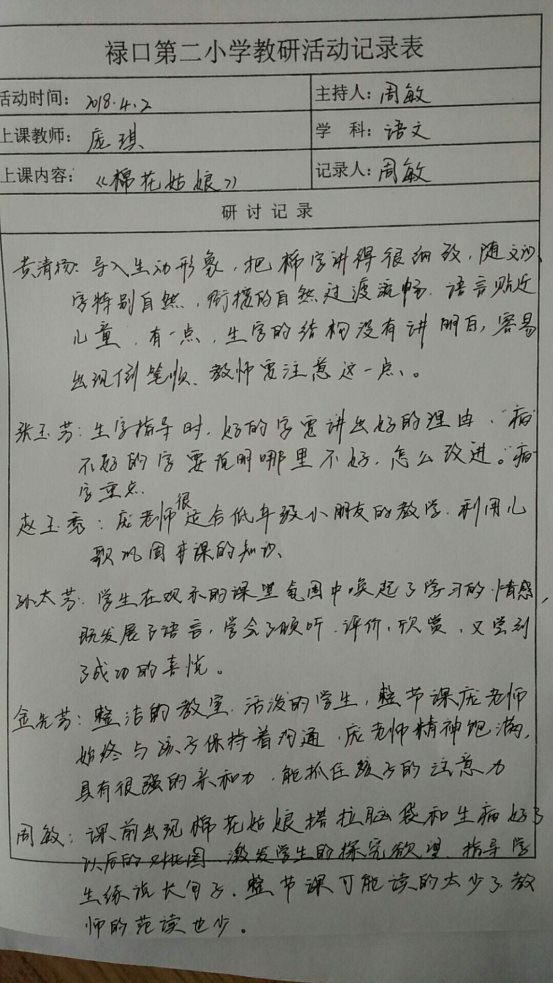 禄口第二小学教研活动记录表
活动时间： 2018.4.2 主持人：周敏
上课教师： 庞琪 学 科：语文
上课内容： 《棉花姑娘》 记录人：周敏
研 讨 记 录
黄清扬：导入生动形象，把棉字讲得很细致，随文识
字特别自然，衔接的自然过渡流畅．语言贴近
儿童．有一点，生字的结构没有讲明白，容易
出现倒笔顺．教师要注意这一点。
张玉芳：生字指导时．好的字要讲出好的理由，"病"
不好的字要说明哪里不好．怎么改进。"病"
字重点．
赵玉秀：庞老师很适合低年级小朋友的教学．利用儿
歌巩固本课的知识、
孙太芳．学生在欢乐的课堂氛围中唤起了学习的情感，
既发展了语言，学会了倾听．评价．欣赏，又尝到
了成功的喜悦。
金先芳：整洁的教室．活泼的学生，整节课庞老师
始终与孩子保持着沟通．庞老师精神饱满，
具有很强的亲和力．能抓住孩子的注意力
周敏：课前出现棉花姑娘搭拉脑袋和生病好了
以后的对比图 激发学生的探究欲望．指导学
生练说长句子．整节课可能读的太少了教
师的范读也少。